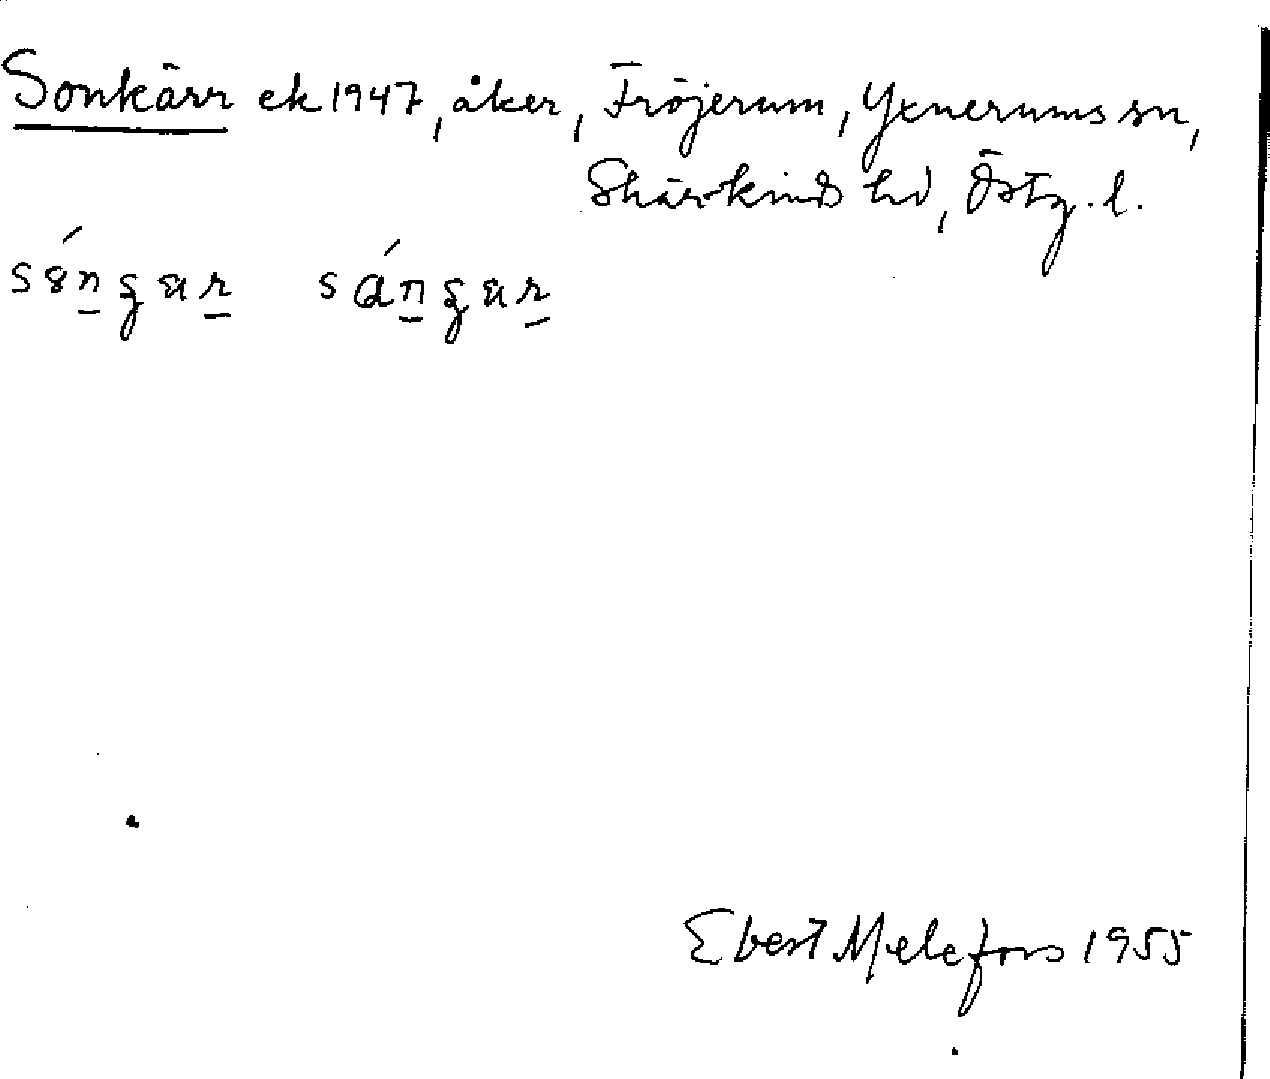 Sonkärr ek 1947, åker, Fröjerum, Yxnerums sn,
Skärkinds hd, Östg. l.
Ebert Melefors 1955